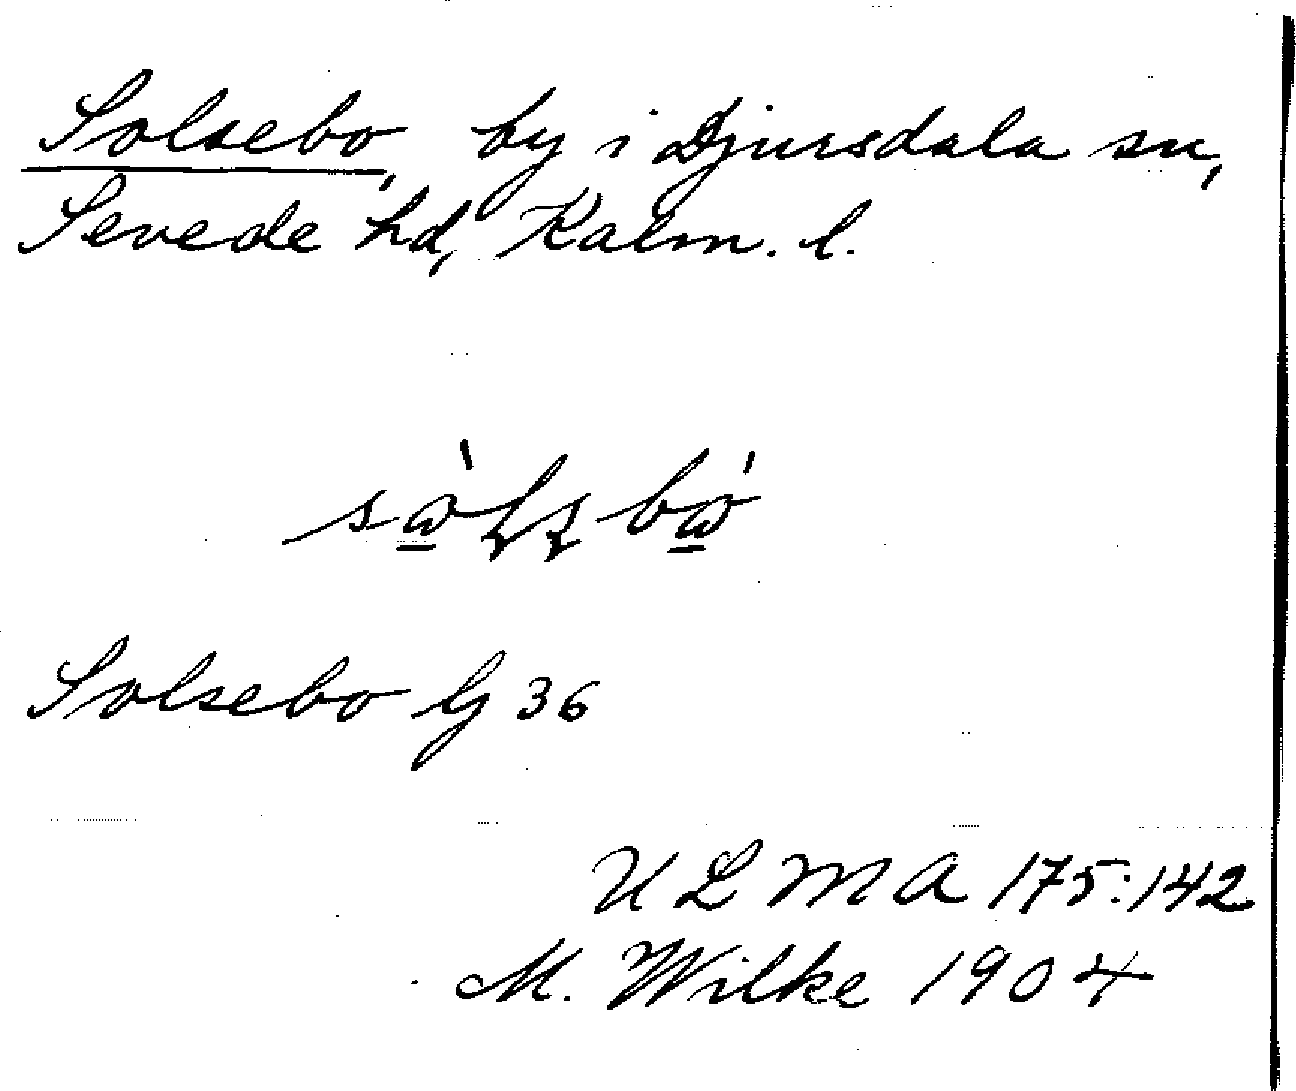 Solsebo, by i Djursdala sn,
Sevede hd, Kalm. l.
Solsebo G 36
ULMA 175:142
M. Wilke 1904